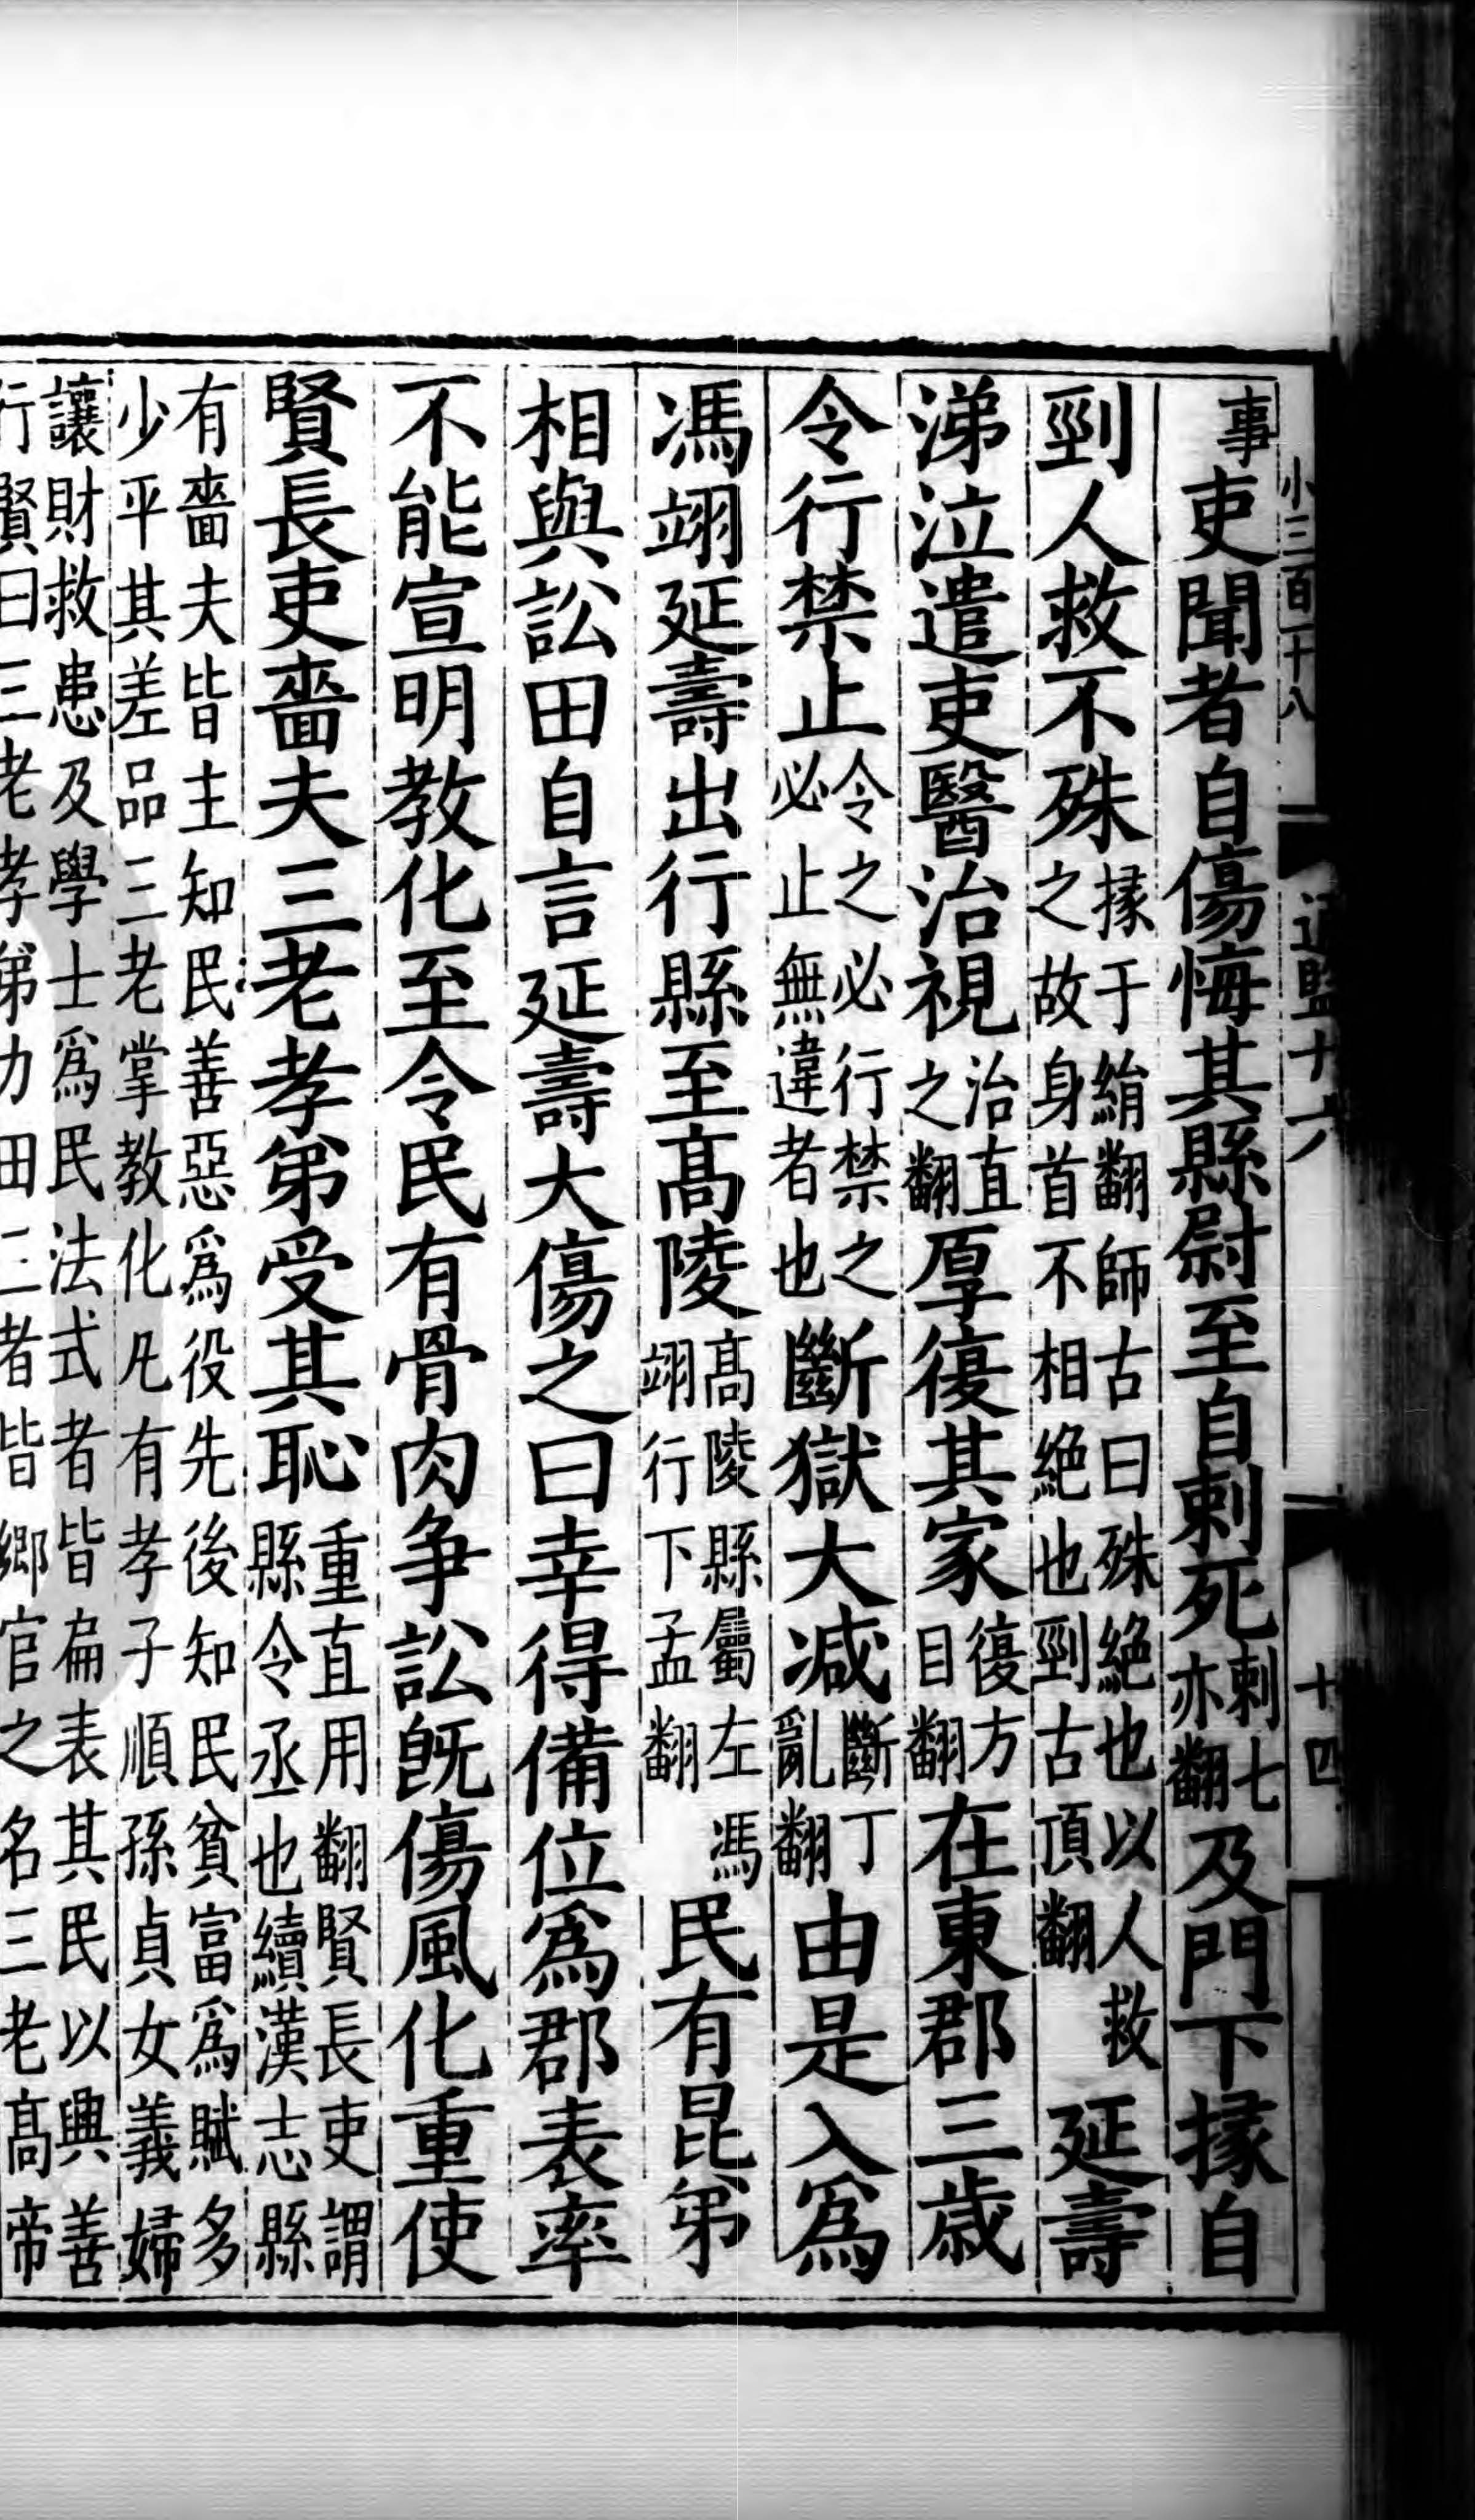 小三百一十八 通鑑十六 十四
事吏聞者自傷悔其縣尉至自刺死刺七亦翻及門下掾自
剄人救不殊掾于絹翻師古曰殊絶也以人救之故身首不相絶也剄古頂翻延壽
涕泣遣吏醫治視治直之翻厚復其家復方目翻在東郡三歲
令行禁止令之必行禁之必止無違者也斷獄大减斷丁亂翻由是入爲
馮翊延壽出行縣至髙陵髙陵縣屬左馮翊行下孟翻民有昆弟
相與訟田自言延壽大傷之曰幸得備位爲郡表率
不能宣明教化至令民有骨肉争訟旣傷風化重使
賢長吏嗇夫三老孝弟受其恥重直用翻賢長吏謂縣令丞也續漢志縣
有嗇夫皆主知民善惡爲役先後知民貧富爲賦多少平其差品三老掌教化凡有孝子順孫貞女義婦
讓財救患及學士爲民法式者皆扁表其民以興善行賢曰三老孝弟力田三者皆鄉官之名三老髙帝